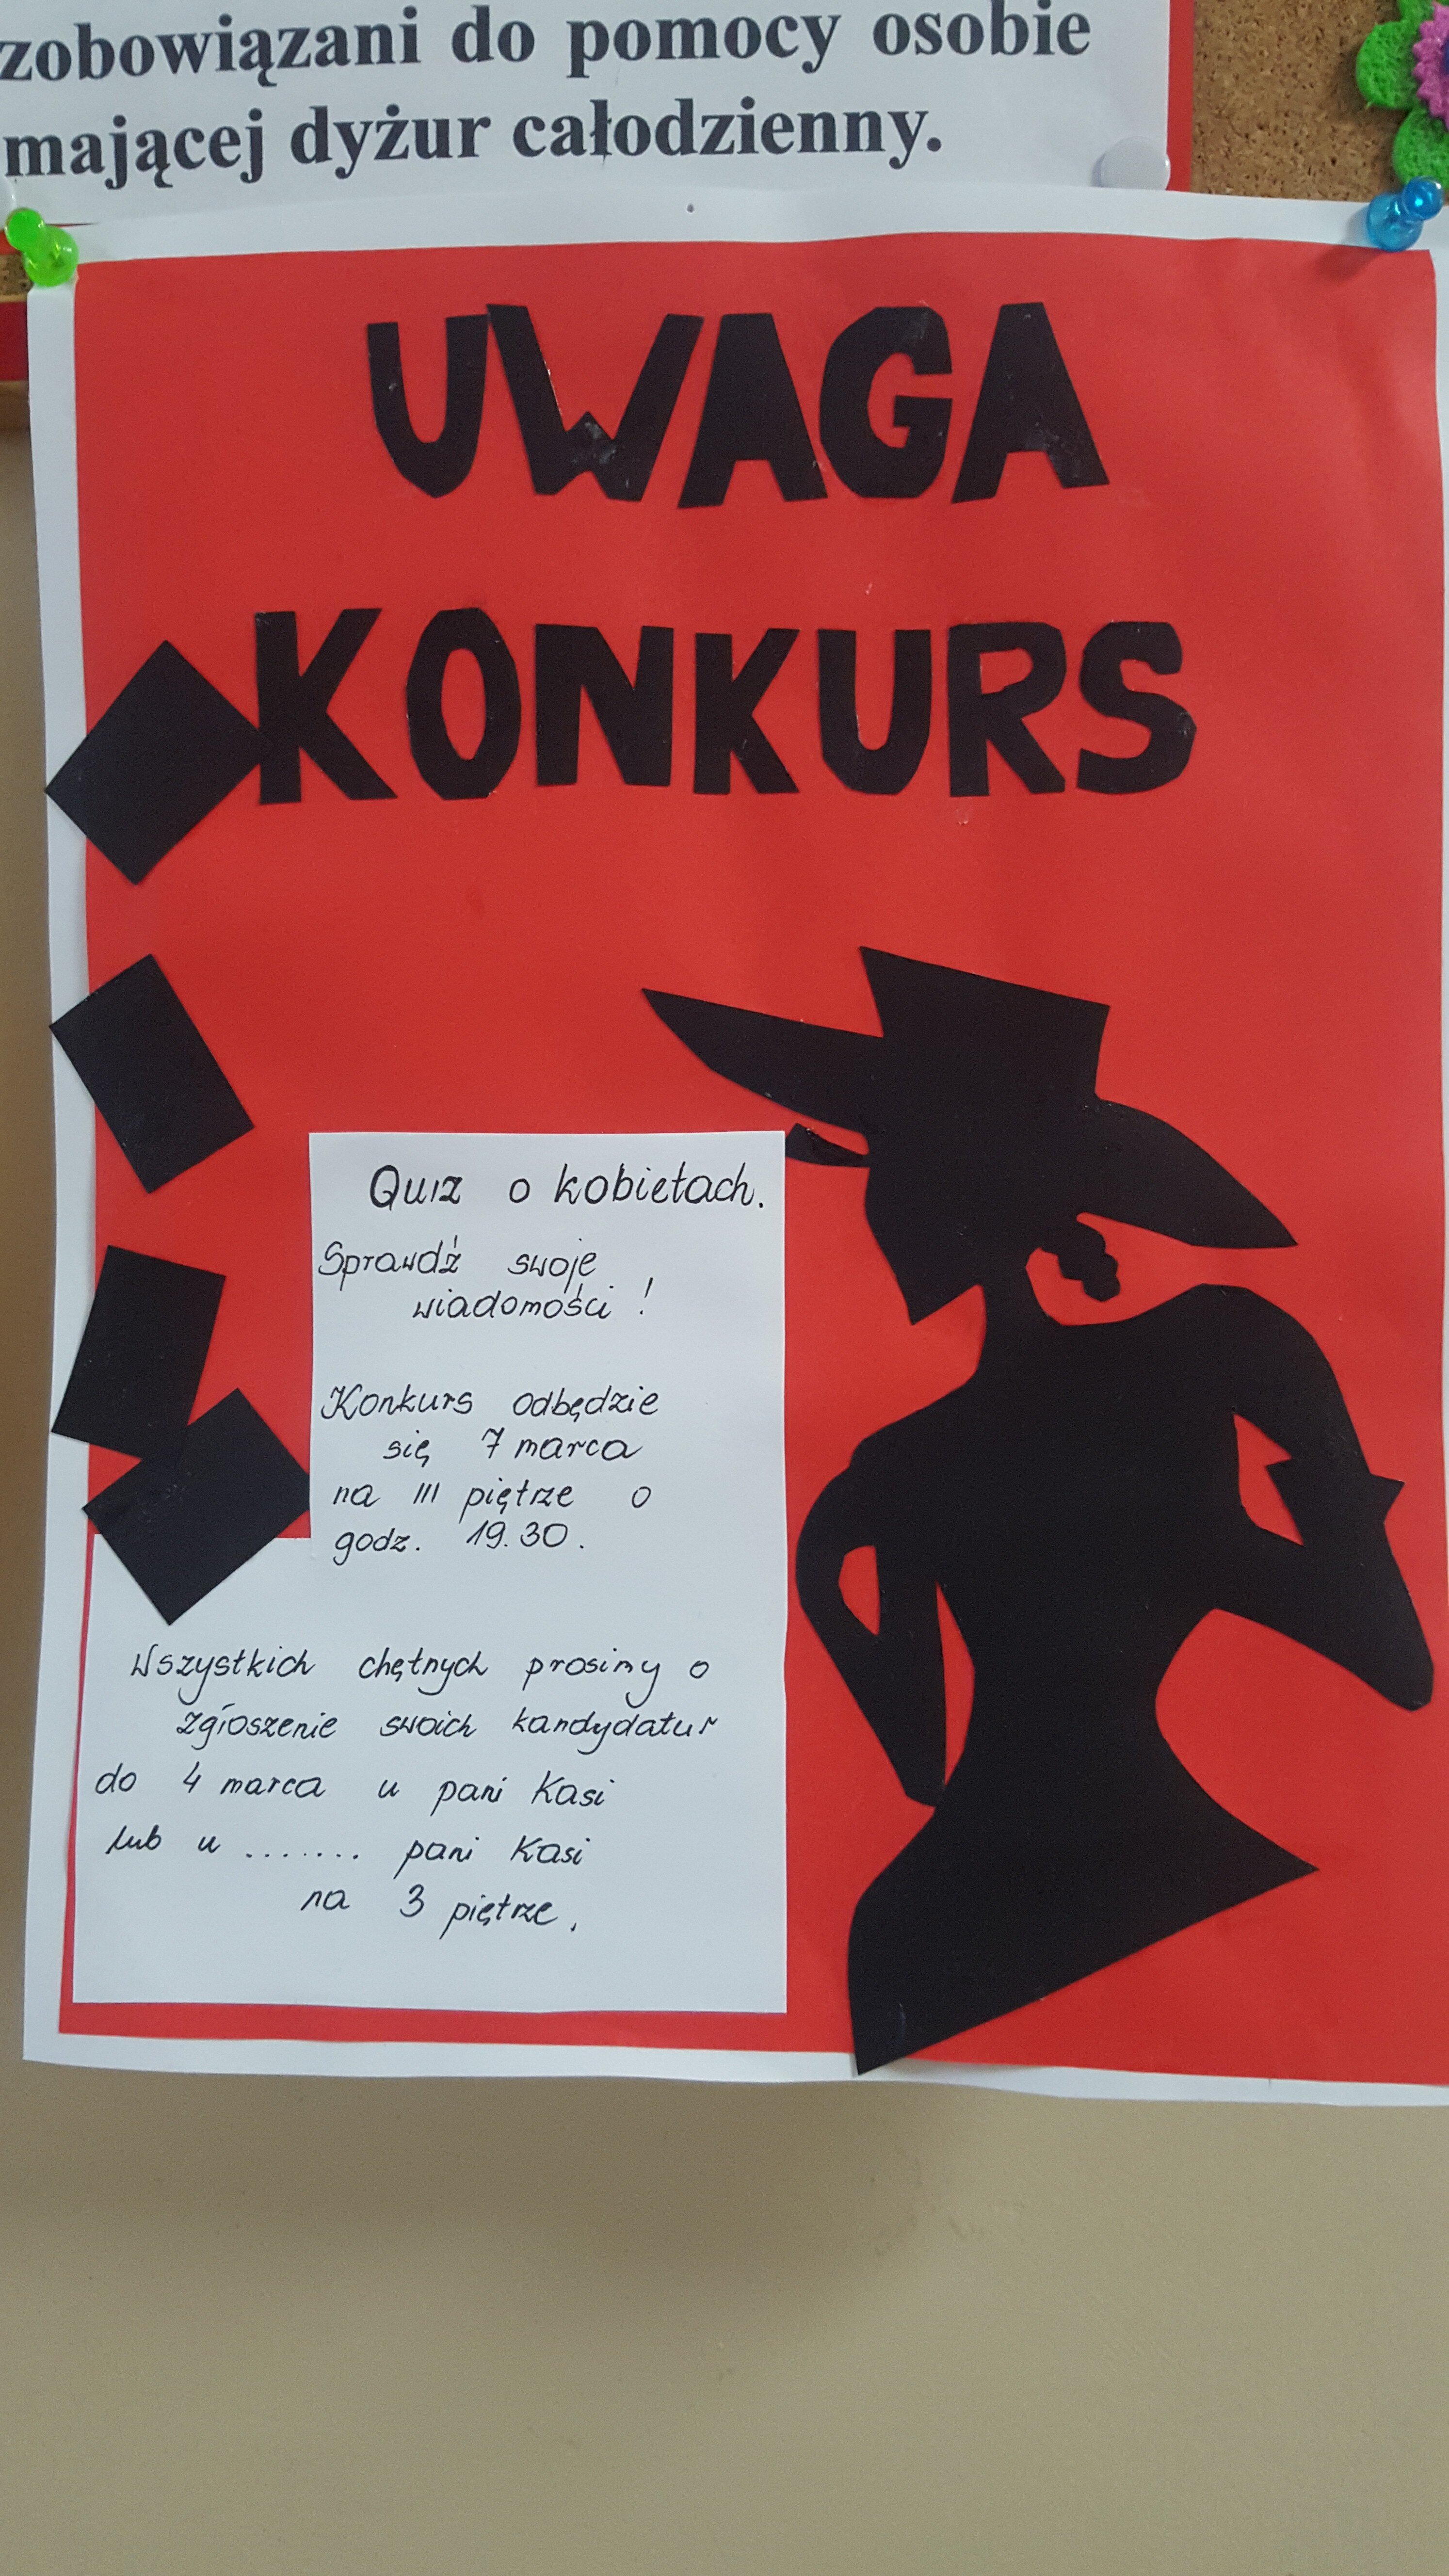 zobowiązani do pomocy osobie
mającej dyżur całodzienny.
UWAGA
KONKURS
Quiz o kobietach.
Sprawdź swoje
wiadomości !
Konkurs odbędzie
się 7 marca
na III piętrze o
godz. 19.30.
Wszystkich chętnych prosimy o
zgłoszenie swoich kandydatur
do 4 marca u pani Kasi
lub u ....... pani Kasi
na 3 piętrze.